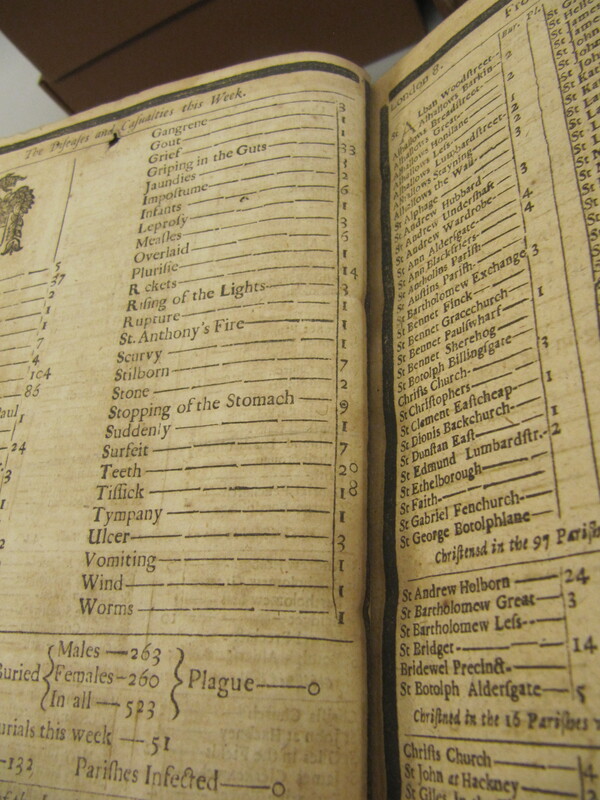 The Diſeaſes and Caſualties this Week.
Gangrene 3
Gout 1
Grief 1
Griping in the Guts 33
Jaundies 3
Impoſtume 2
Infants 6
Leproſy 1
Meaſles 3
Overlaid 6
Pluriſie 1
R ckets 14
Riſing of the Lights 3
Rupture 1
St. Anthony's Fire 1
Scurvy 1
Stilborn 7
Stone 2
Stopping of the Stomach 9
Suddenly 1
Surfeit 7
Teeth 20
Tiſſick 18
Tympany 1
Ulcer 3
Vomiting 1
Wind 1
Worms 1
5
37
2
1
1
7
4
104
86
1
24
3
1
2
1
Males 263
Females 260
In all 523
Plague 0
this week 51
132 Pariſhes Infected 0
London 8.
Bur. Pl.
St Alban Woodſtreet
Alhallows Barkin
Alhallows Breadſtreet
Alhallows Great
Alhallows Honilane
Alhallows Leſs
Alhallows Lumbardſtreet
Alhallows Stayning
Alhallows the Wall
St Alphage
St Andrew Hubbard
St Andrew Underſhaft
St Andrew Wardrobe
St Ann Alderſgate
St Ann Blackfriers
St Antholins Pariſh
St Auſtins Pariſh
St Bartholomew Exchange
St Bennet Finck
St Bennet Gracechurch
St Bennet Paulſwharf
St Bennet Sherehog
St Botolph Billingſgate
Chriſts Church
St Chriſtophers
St Clement Eaſtcheap
St Dionis Backchurch
St Dunſtan Eaſt
St Edmund Lumbardſtr. 2
St Ethelborough
St Faith
St Gabriel Fenchurch
St George Botolphlane
Chriſtened in the 97
St Andrew Holborn 24
St Bartholomew Great 3
St Bartholomew Leſs
St Bridget 14
Bridewel Precinct
St Botolph Alderſgate 5
Chriſtned in the 16 Pariſhes
Chriſts Church 4
St John at Hackney
St Giles